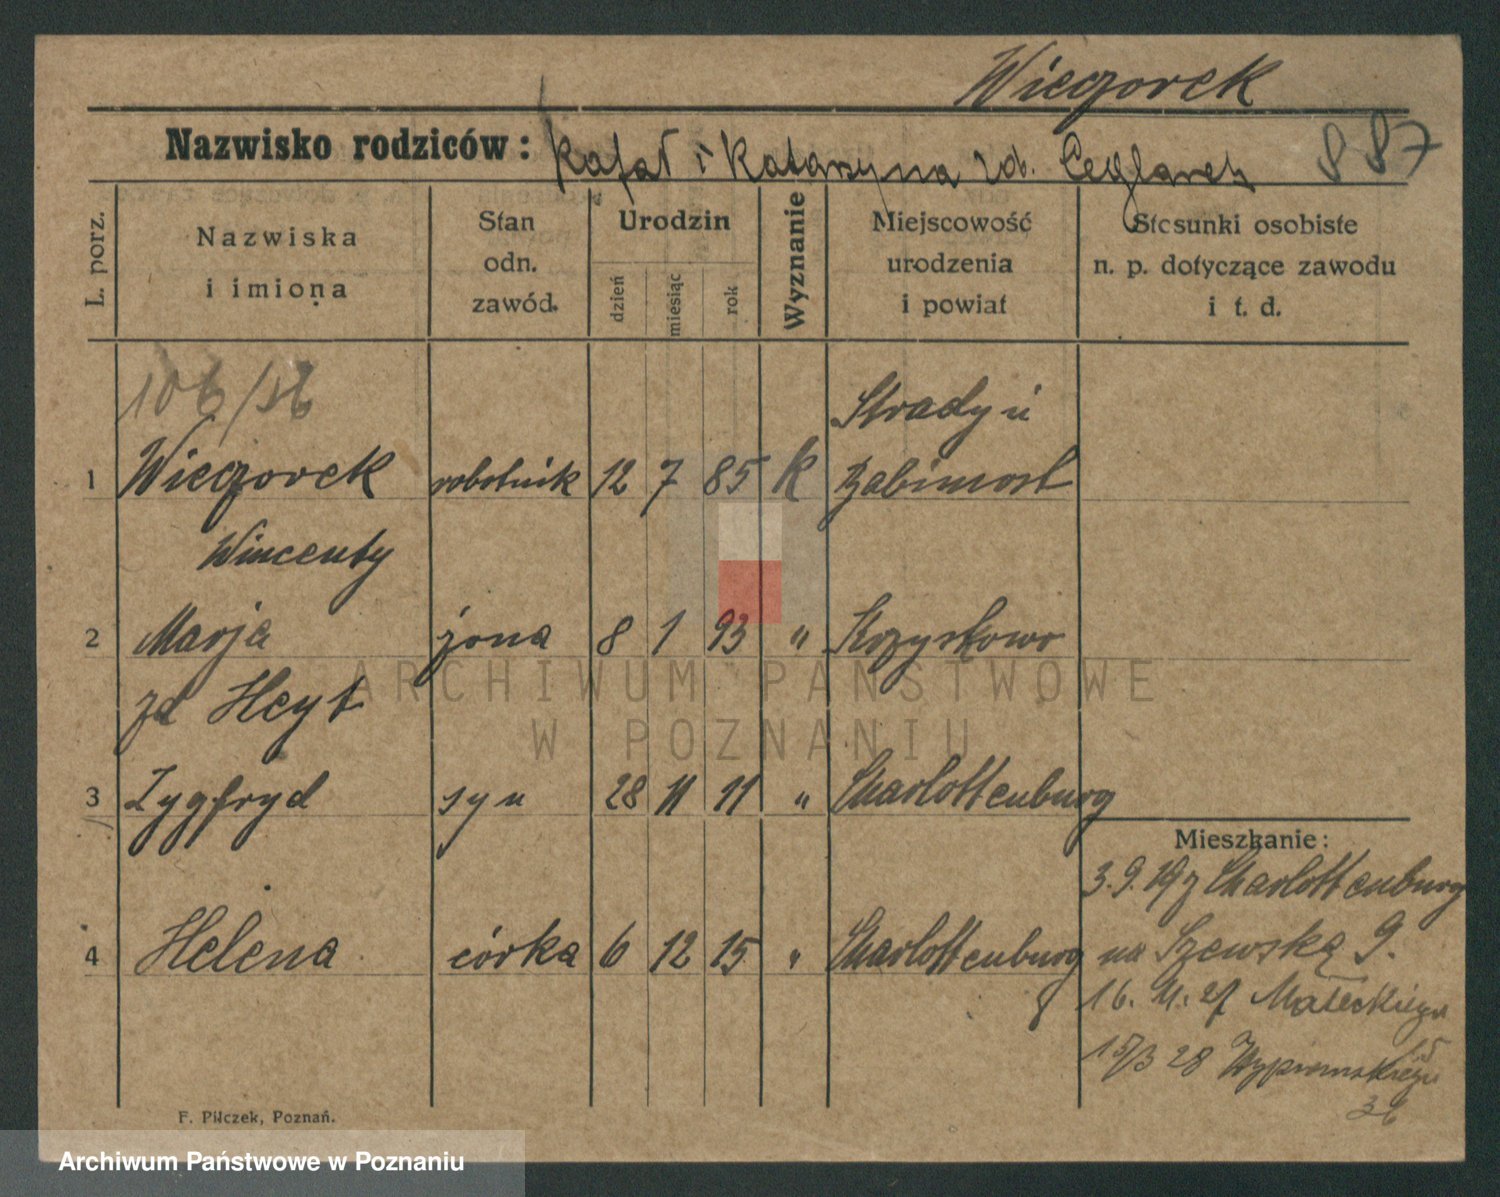 Wieczorek
Nazwisko rodziców: Rafał i Katarzyna zd. Ceglarek 887
L. porz.
Nazwiska
i imiona
Stan
odn.
zawód.
Urodzin
dzień
miesiąc
rok
Wyznanie
Miejscowość
urodzenia
i powiat
Stosunki osobiste
n. p. dotyczące zawodu
i t. d.
106/36
Stradyń
1 Wieczorek robotnik 12 7 85 k Babimost
Wincenty
2 Marja żona 8 1 93 "
zd Heyt
3 Zygfryd syn 28 11 11 " Charlottenburg
Mieszkanie:
3.9.19 z Charlottenburg
4 Helena córka 6 12 15 " Charlottenburg na Szewską 9.
16. 11. 27 Małeckiego
15/3 28
36
F. Pilczek, Poznań.
ARCHIWUM PAŃSTWOWE
W POZNANIU
Archiwum Państwowe w Poznaniu